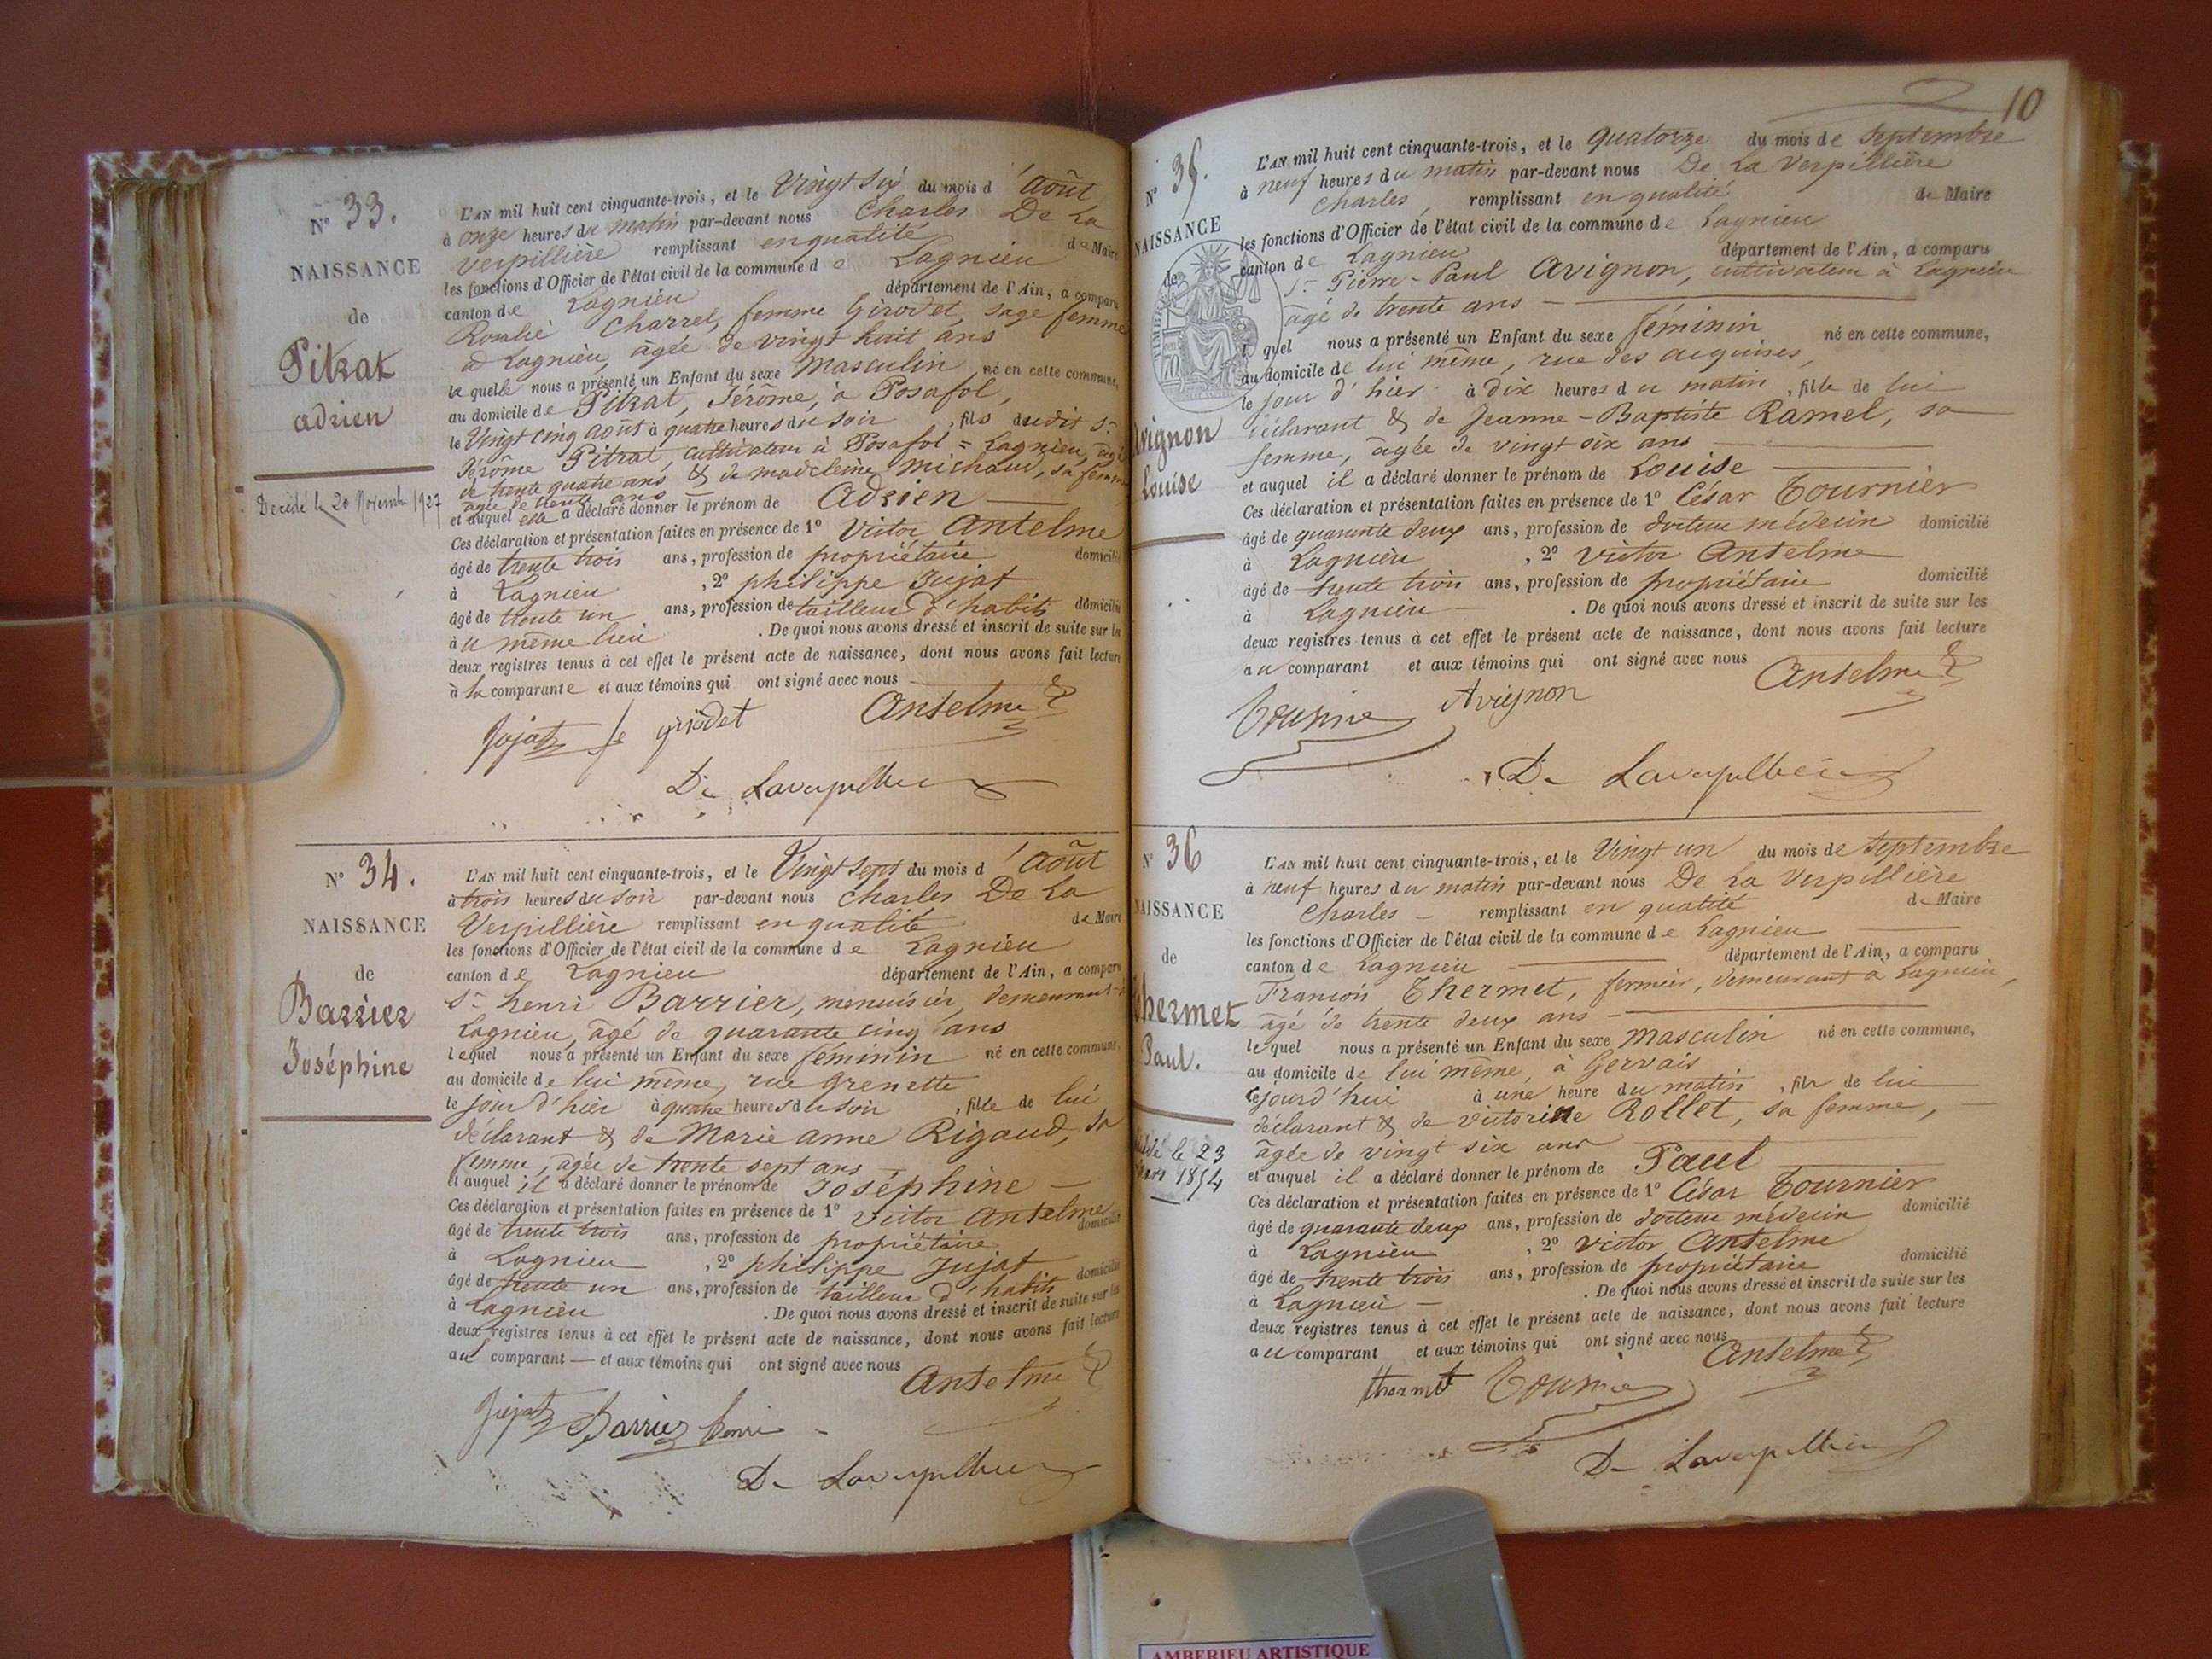 N° 33.
NAISSANCE
de
Pitrat
adrien
Décédé le 20 Novembre 1927
L'AN mil huit cent cinquante-trois, et le Vingt six du mois d'Août
à onze heures du matin par-devant nous Charles De La
Verpillière remplissant en qualité de Maire
les fonctions d'Officier de l'état civil de la commune de Lagnieu
canton de Lagnieu département de l'Ain, a comparu
Rosalie Charrel, femme Girodet, sage femme
à Lagnieu, âgée de vingt huit ans
laquelle nous a présenté un Enfant du sexe Masculin né en cette commune,
au domicile de Pitrat, Jérôme, à Posafol,
le Vingt cinq août à quatre heures du soir, fils dudit Sr
Jérôme Pitrat, cultivateur à Posafol = Lagnieu, âgé
de trente quatre ans, & de madeleine michaud, sa femme
âgée de trente ans
et auquel elle a déclaré donner le prénom de Adrien
Ces déclaration et présentation faites en présence de 1° Victor Antelme
âgé de trente trois ans, profession de propriétaire domicilié
à Lagnieu, 2° philippe Jujat
âgé de trente un ans, profession de tailleur d'habits domicilié
au même lieu. De quoi nous avons dressé et inscrit de suite sur les
deux registres tenus à cet effet le présent acte de naissance, dont nous avons fait lecture
à la comparante et aux témoins qui ont signé avec nous
Antelme
Jujat fe girodet
De Laverpilliere
N° 34.
NAISSANCE
de
Barrier
Joséphine
L'AN mil huit cent cinquante-trois, et le Vingt sept du mois d'Août
à trois heures du soir par-devant nous Charles De La
Verpillière remplissant en qualité de Maire
les fonctions d'Officier de l'état civil de la commune de Lagnieu
canton de Lagnieu département de l'Ain, a comparu
Sr henri Barrier, menuisier, demeurant à
Lagnieu, âgé de quarante cinq ans
lequel nous a présenté un Enfant du sexe féminin né en cette commune,
au domicile de lui même, rue grenette
le jour d'hier à quatre heures du soir, fille de lui
déclarant & de Marie anne Rigaud, sa
femme, âgée de trente sept ans
et auquel il a déclaré donner le prénom de Joséphine
Ces déclaration et présentation faites en présence de 1° Victor Antelme
âgé de trente trois ans, profession de propriétaire domicilié
à Lagnieu, 2° philippe Jujat
âgé de trente un ans, profession de tailleur d'habits domicilié
à Lagnieu. De quoi nous avons dressé et inscrit de suite sur les
deux registres tenus à cet effet le présent acte de naissance, dont nous avons fait lecture
au comparant — et aux témoins qui ont signé avec nous
Antelme
Jujat Barrier henri
De Laverpilliere
10
N° 35.
NAISSANCE
de
Avignon
Louise
L'AN mil huit cent cinquante-trois, et le quatorze du mois de Septembre
à neuf heures du matin par-devant nous De La Verpillière
Charles, remplissant en qualité de Maire
les fonctions d'Officier de l'état civil de la commune de Lagnieu
canton de Lagnieu département de l'Ain, a comparu
Sr Pierre-Paul Avignon, cultivateur à Lagnieu
âgé de trente ans
lequel nous a présenté un Enfant du sexe féminin né en cette commune,
au domicile de lui même, rue des
le jour d'hier à dix heures du matin, fille de lui
déclarant & de Jeanne-Baptiste Ramel, sa
femme, âgée de vingt six ans
et auquel il a déclaré donner le prénom de Louise
Ces déclaration et présentation faites en présence de 1° César Tournier
âgé de quarante deux ans, profession de docteur médecin domicilié
à Lagnieu, 2° Victor Antelme
âgé de trente trois ans, profession de propriétaire domicilié
à Lagnieu. De quoi nous avons dressé et inscrit de suite sur les
deux registres tenus à cet effet le présent acte de naissance, dont nous avons fait lecture
au comparant et aux témoins qui ont signé avec nous
Antelme
Tournier Avignon
De Laverpilliere
N° 36
NAISSANCE
de
Thermet
Paul.
Décédé le 23
mars 1854
L'AN mil huit cent cinquante-trois, et le Vingt un du mois de Septembre
à neuf heures du matin par-devant nous De La Verpillière
Charles remplissant en qualité de Maire
les fonctions d'Officier de l'état civil de la commune de Lagnieu
canton de Lagnieu département de l'Ain, a comparu
François Thermet, fermier, demeurant à Lagnieu,
âgé de trente deux ans
lequel nous a présenté un Enfant du sexe Masculin né en cette commune,
au domicile de lui même, à Gervais
cejourd'hui à une heure du matin, fils de lui
déclarant & de victorine Rollet, sa femme,
âgée de vingt six ans
et auquel il a déclaré donner le prénom de Paul
Ces déclaration et présentation faites en présence de 1° César Tournier
âgé de quarante deux ans, profession de docteur médecin domicilié
à Lagnieu, 2° Victor Antelme
âgé de trente trois ans, profession de propriétaire domicilié
à Lagnieu. De quoi nous avons dressé et inscrit de suite sur les
deux registres tenus à cet effet le présent acte de naissance, dont nous avons fait lecture
au comparant et aux témoins qui ont signé avec nous
Antelme
thermet Tournier
De Laverpilliere
AMBERIEU ARTISTIQUE